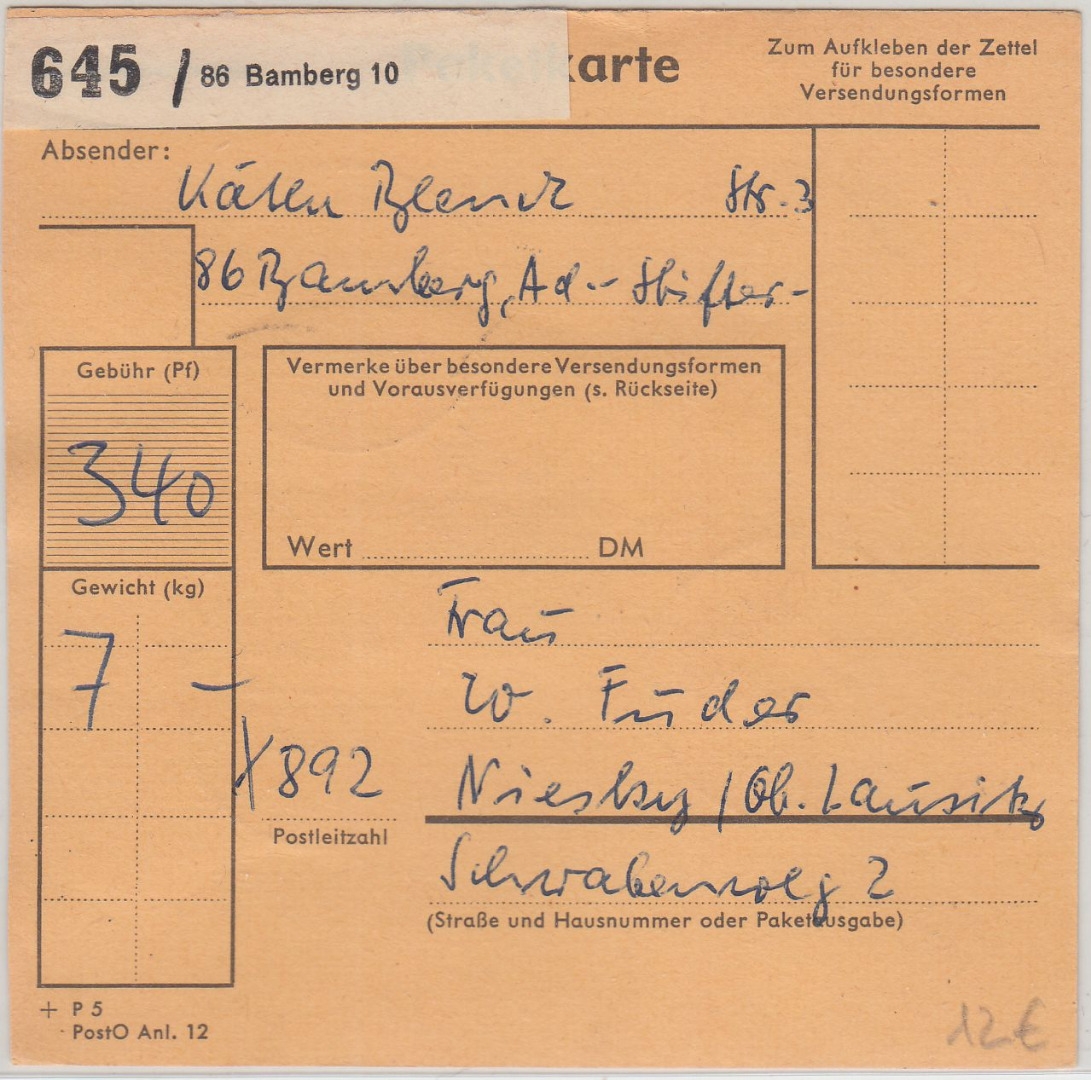 645 / 86 Bamberg 10
karte
Zum Aufkleben der Zettel
für besondere
Versendungsformen
Absender:
Str. 3
86 Bamberg, Ad.-Stifter-
Gebühr (Pf)
340
Vermerke über besondere Versendungsformen
und Vorausverfügungen (s. Rückseite)
Wert DM
Gewicht (kg)
7 –
Frau
W. Fuder
X892
Niesky / Ob. Lausitz
Postleitzahl
Schwabenweg 2
(Straße und Hausnummer oder Paketausgabe)
+ P 5
PostO Anl. 12
12 €